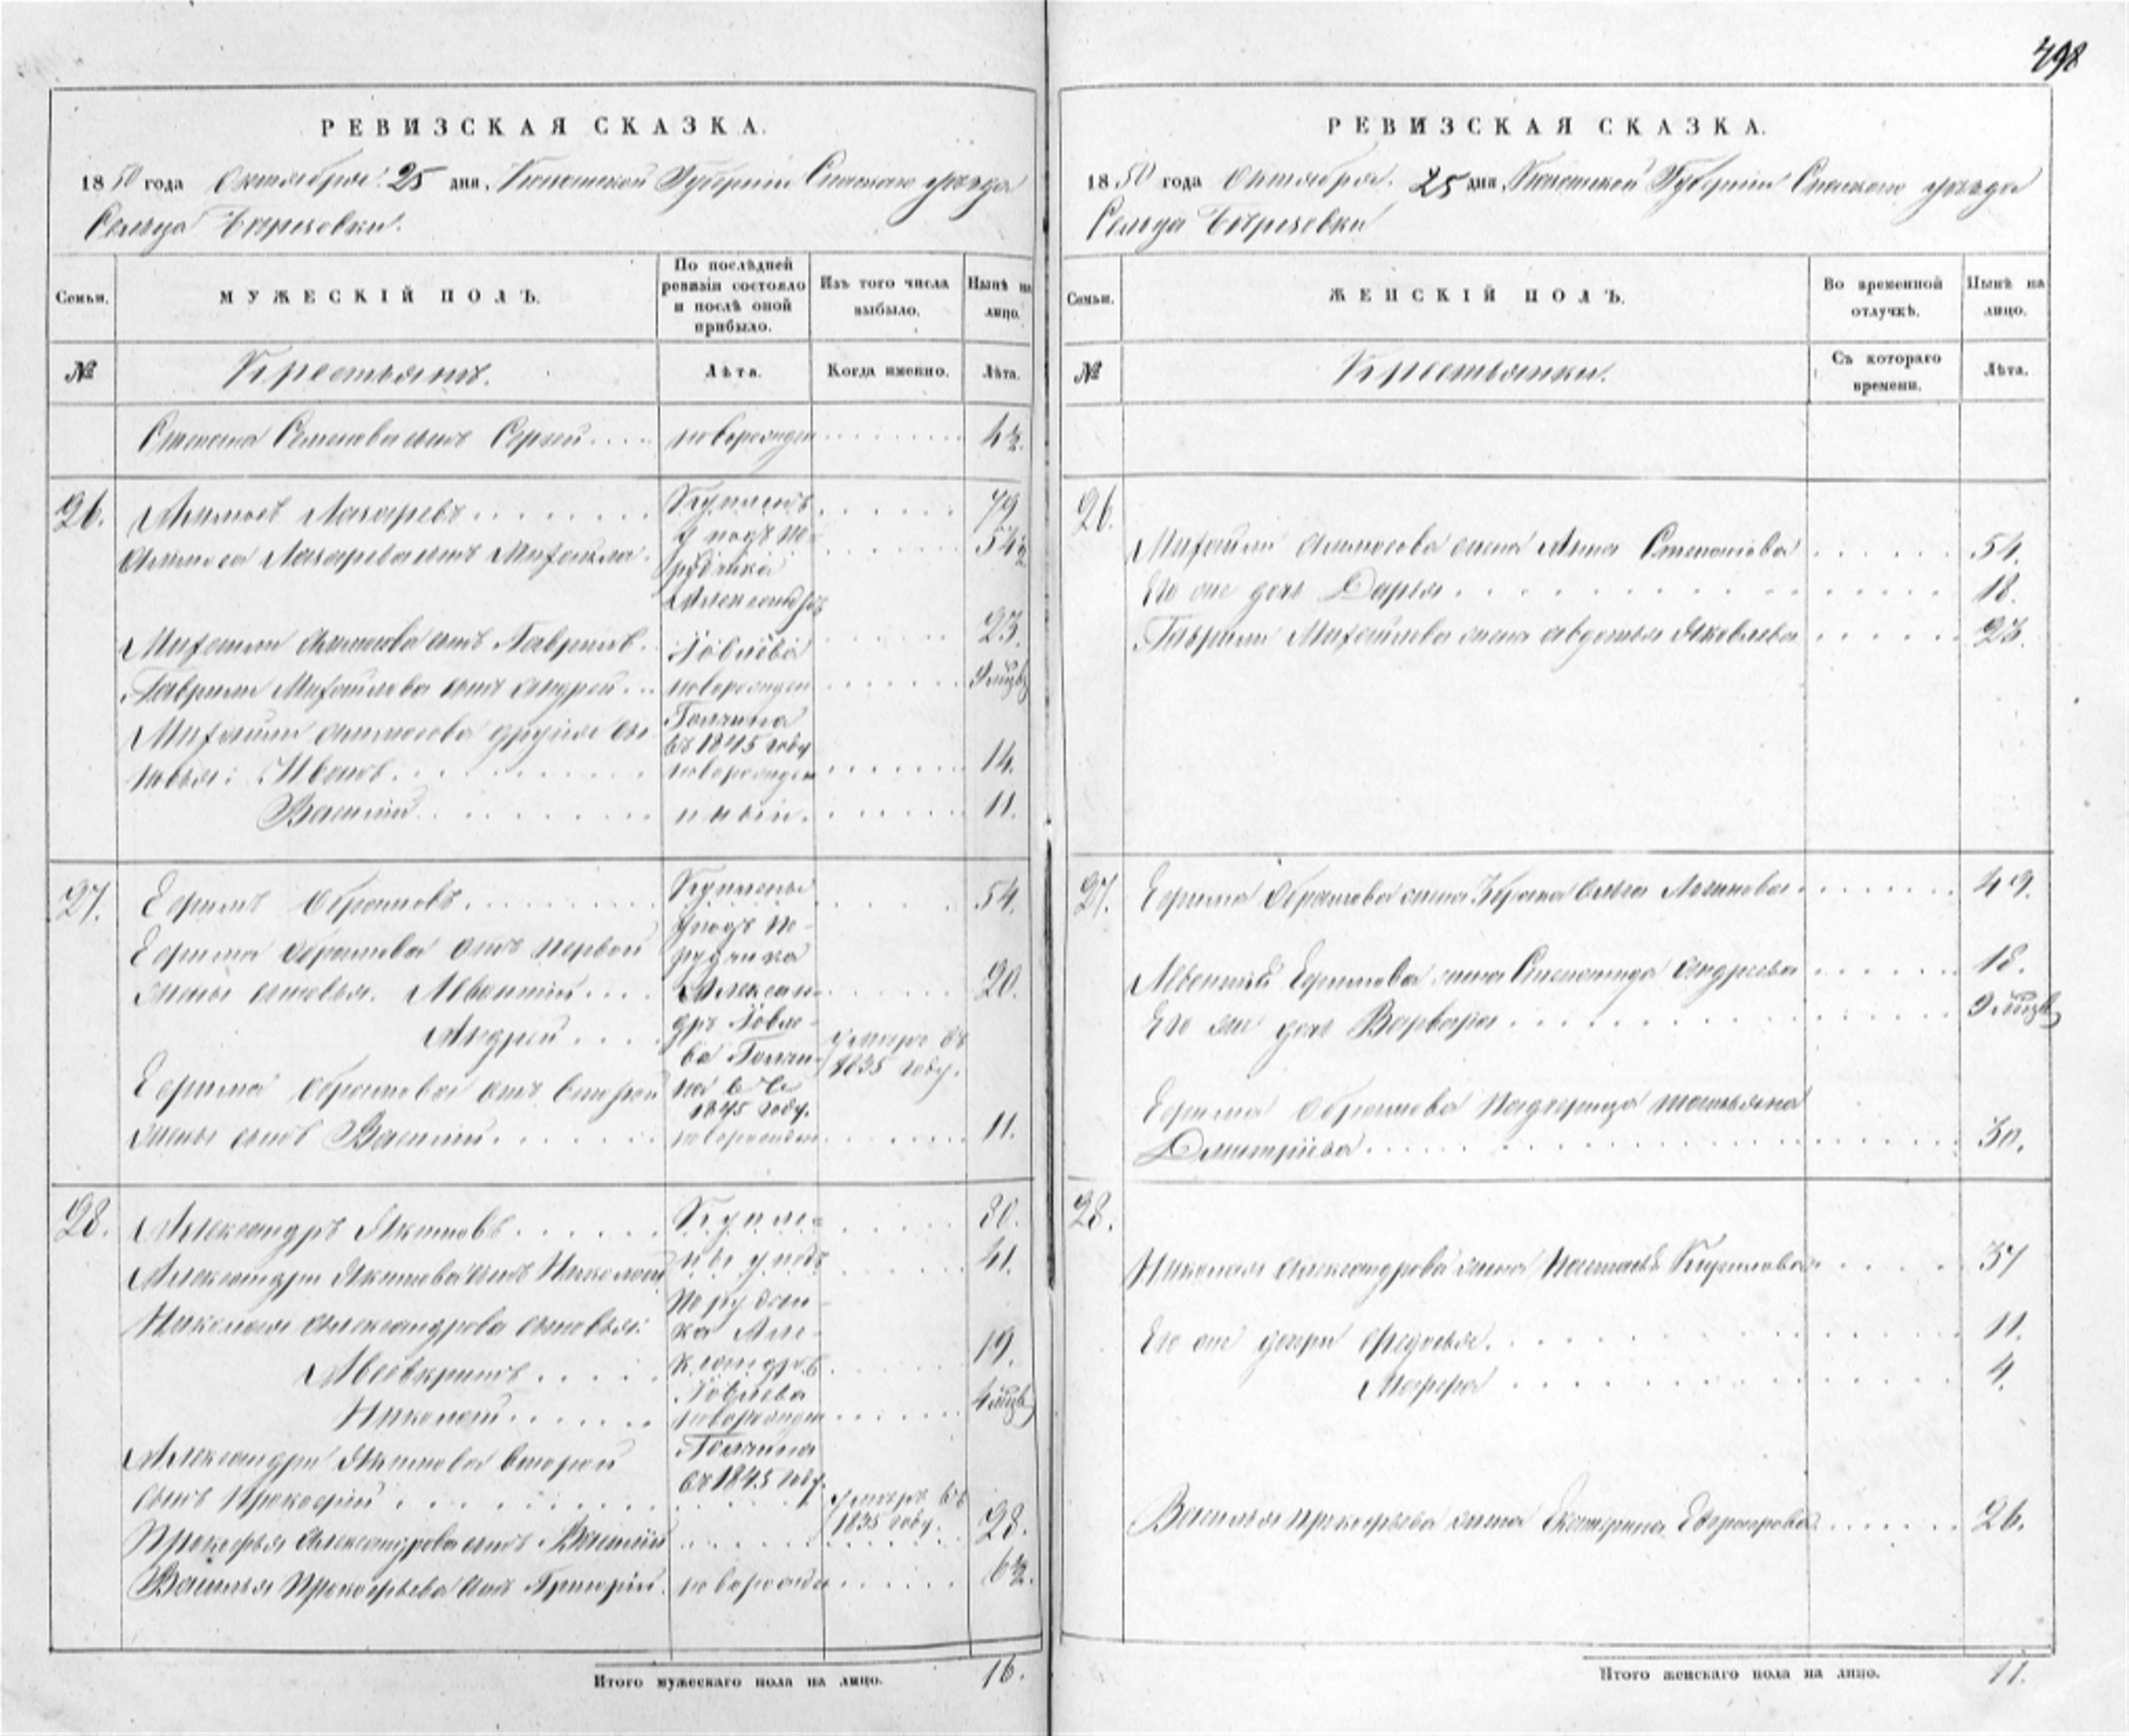 498
РЕВИЗСКАЯ СКАЗКА.
1850 года Октября 25 дня, Губерніи Спаскаго уѣзда
Сельца Борисовки.
Семьи.
МУЖЕСКІЙ ПОЛЪ.
По послѣдней ревизіи состояло и послѣ оной прибыло.
Изъ того числа выбыло.
Нынѣ на лицо.
№
Крестьянъ.
Лѣта.
Когда именно.
Лѣта.
Степана Семенова сынъ Сергей новорожден 4½.
26. Лазаревъ Купленъ 79
Лазарева сынъ Михайла у подъ по- 54½
рудчика
Александръ
Михайлы сынъ Гаврилъ 23.
Гаврилы Михайлова сынъ Андрей новорожден 9 мцвъ
Михайлы другія сы- Голчина
въ 1845 году
новья: Иванъ новорожден 14.
Василій ныіи. 11.
27. Ефимъ Абрамовъ Купленъ 54.
у подъ по-
Ефима Абрамова отъ первой рудчика
жены сыновья. Алексан- 20.
Андрей дръ умеръ въ 1835 году.
Голчи-
Ефима Абрамова отъ второй на въ
1845 году.
жены сынъ Василій новорожден 11.
28. Александръ Якимовъ Купле- 80.
Александра Якимова сынъ Николай ны у подъ 41.
Николая Александрова сыновья: поручи-
ка Але-
ксандра 19.
Николай новорожден 4 мцвъ
Александра Якимова второй Голчина
въ 1845 году.
сынъ Прокофій умеръ въ 1835 году.
Прокофья Александрова сынъ Василій 28.
Василья Прокофьева сынъ Григорій новорожден 6½.
Итого мужескаго пола на лицо. 16.
РЕВИЗСКАЯ СКАЗКА.
1850 года Октября 25 дня Губерніи Спаскаго уѣзда
Сельца Борисовки
Семьи.
ЖЕНСКІЙ ПОЛЪ.
Во временной отлучкѣ.
Нынѣ на лицо.
№
Крестьянки.
Съ котораго времени.
Лѣта.
26.
Михайлы жена Анна Степанова 54.
Его же дочь Дарья 18.
Гаврилы Михайлова жена Авдотья Яковлева 23.
27. Ефима Абрамова жена Ольга Логинова 49.
Ефимова жена Степанида Андреева 18.
Его же дочь Варвара 9 мцвъ
Ефима Абрамова падчерица Татьяна
Дмитріева 30.
28.
Николая Александрова жена Кирилова 37
Его же дочери Федосья 11.
Марфа 4.
Василья Прокофьева жена Екатерина 26.
Итого женскаго пола на лицо. 11.